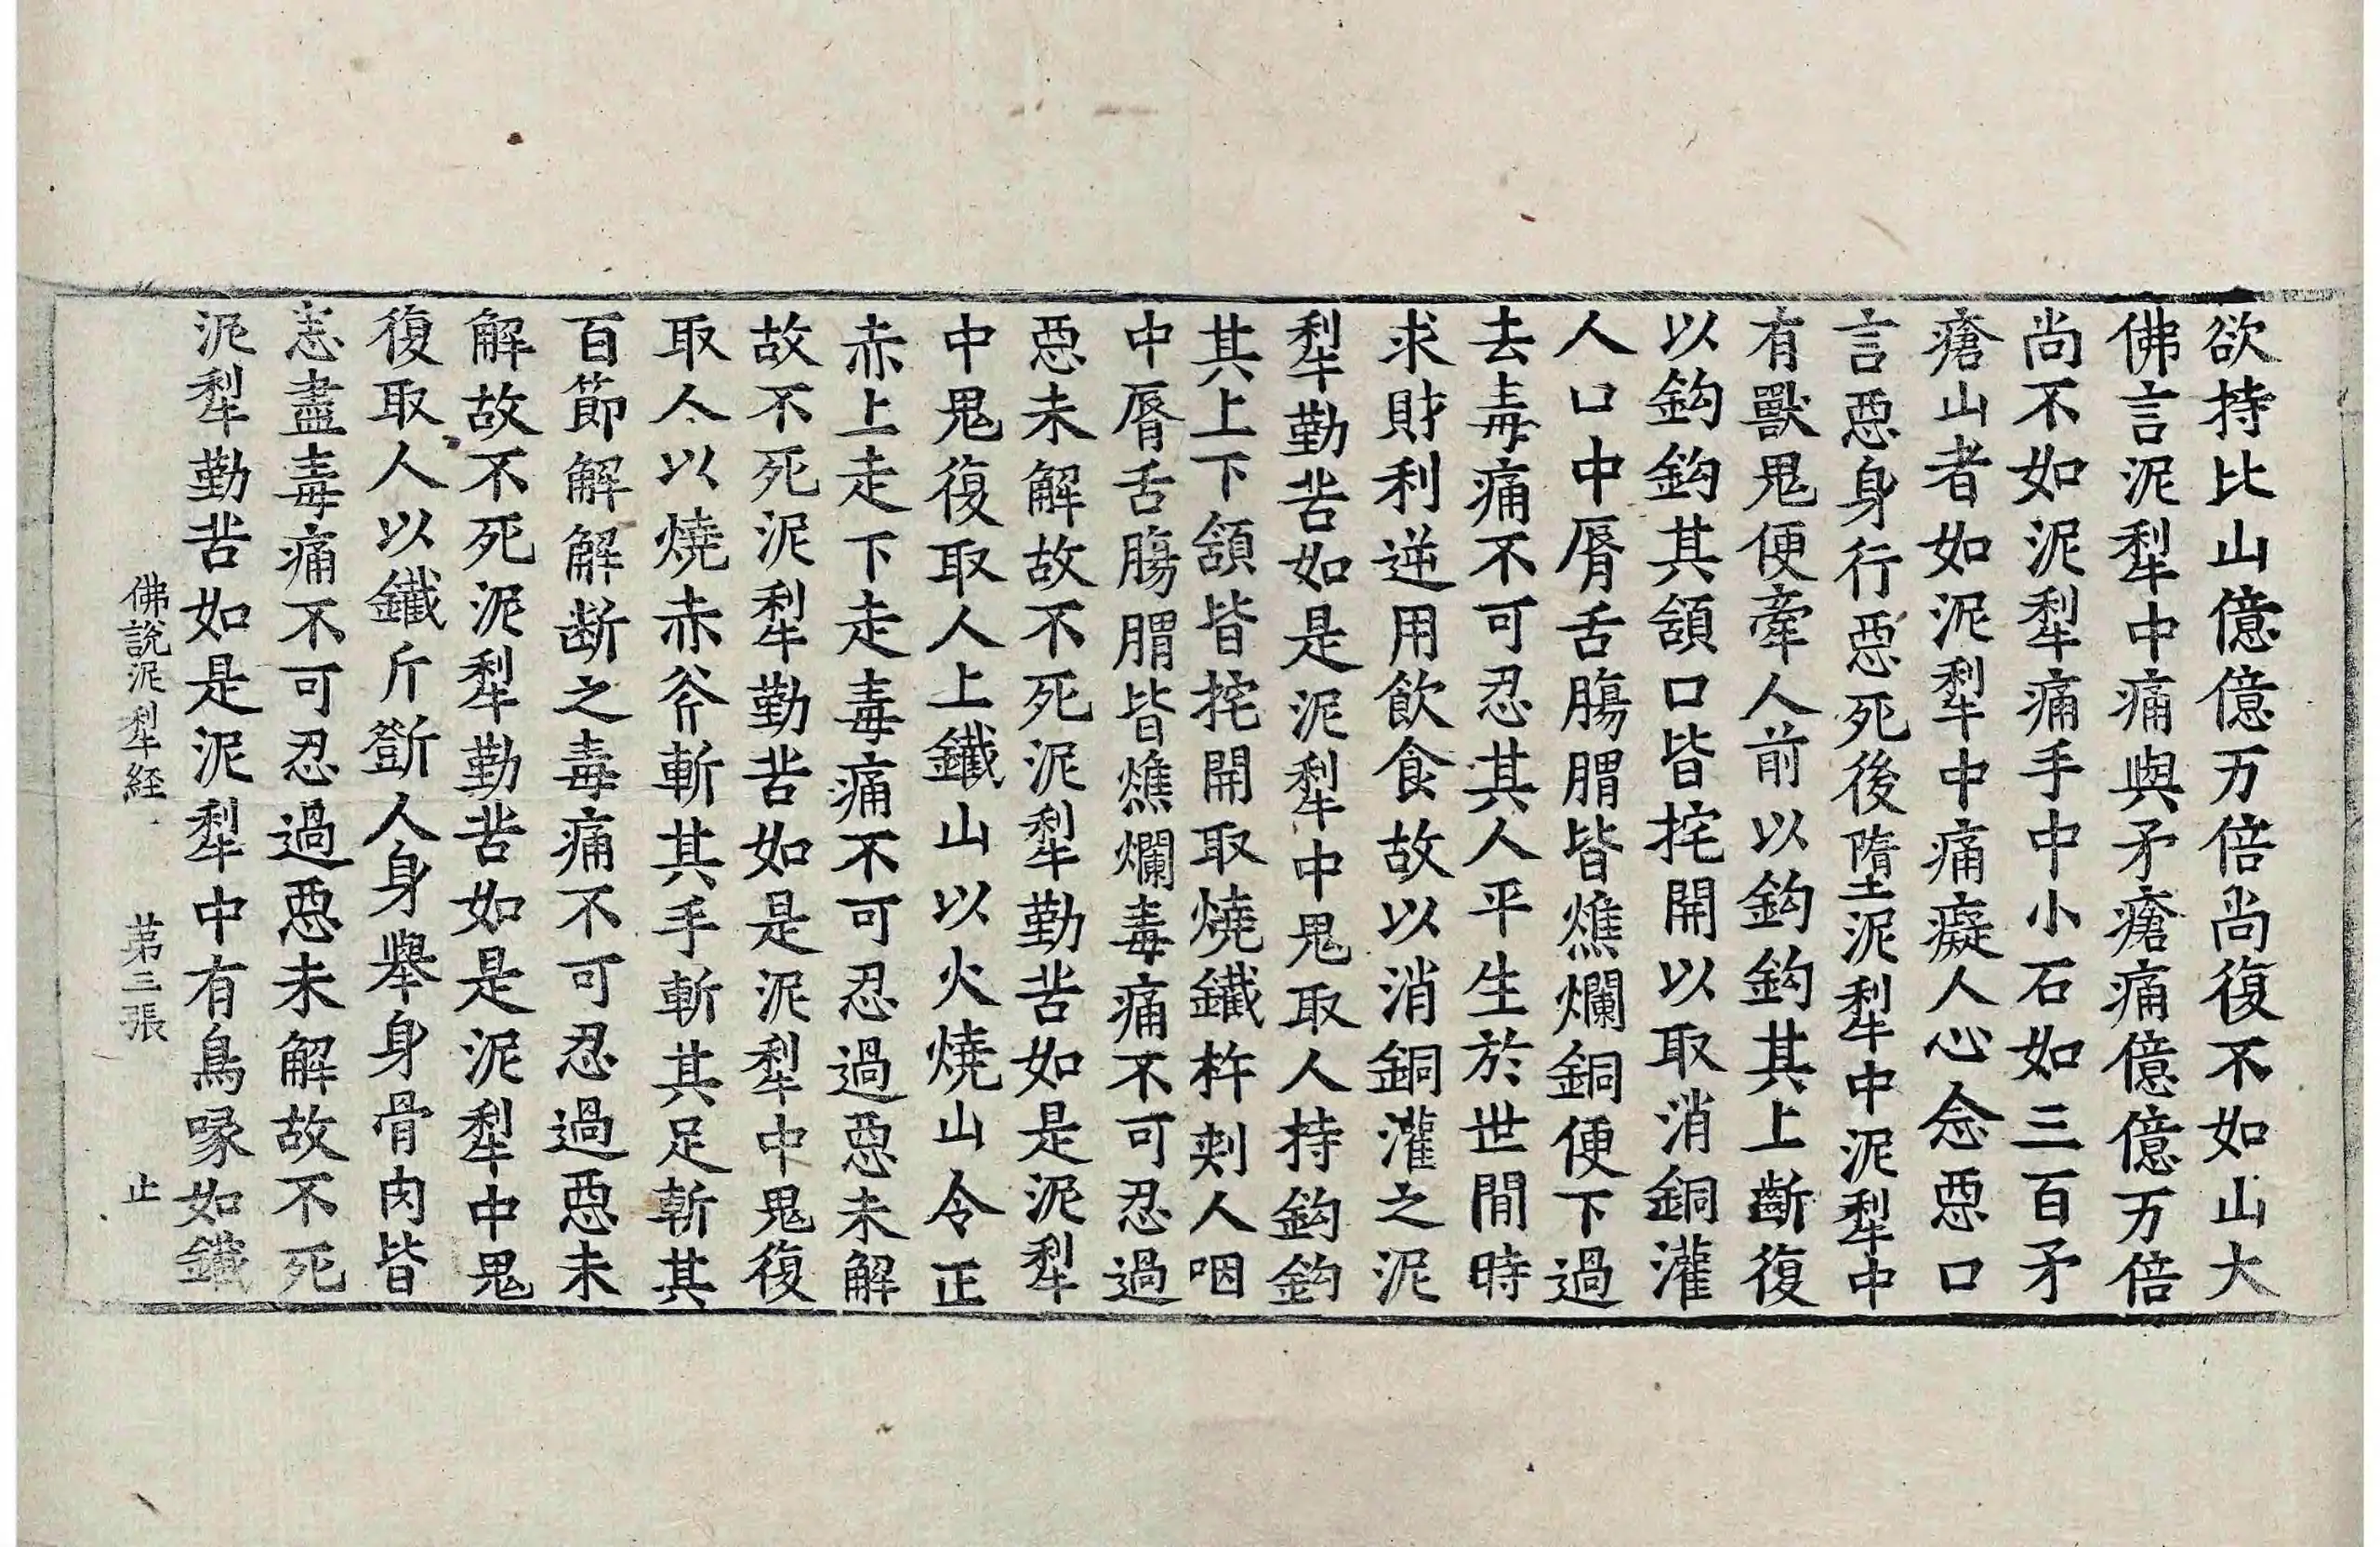 欲持比山億億万倍尚復不如山大
佛言泥犁中痛與矛瘡痛億億万倍
尚不如泥犁痛手中小石如三百矛
瘡山者如泥犁中痛癡人心念惡口
言惡身行惡死後墮泥犁中泥犁中
有獸鬼便牽人前以鈎鈎其上齗復
以鈎鈎其頷口皆挓開以取消銅灌
人口中脣舌膓腪皆燋爛銅便下過
去毒痛不可忍其人平生於世間時
求財利逆用飲食故以消銅灌之泥
犁勤苦如是泥犁中鬼取人持鈎鈎
其上下頷皆挓開取燒鐵杵刾人咽
中脣舌膓腪皆燋爛毒痛不可忍過
惡未解故不死泥犁勤苦如是泥犁
中鬼復取人上鐵山以火燒山令正
赤上走下走毒痛不可忍過惡未解
故不死泥犁勤苦如是泥犁中鬼復
取人以燒赤斧斬其手斬其足斬其
百節解解断之毒痛不可忍過惡未
解故不死泥犁勤苦如是泥犁中鬼
復取人以鐵斤斲人身舉身骨肉皆
恚盡毒痛不可忍過惡未解故不死
泥犁勤苦如是泥犁中有鳥喙如鐵
佛說泥犁経 第三張 止